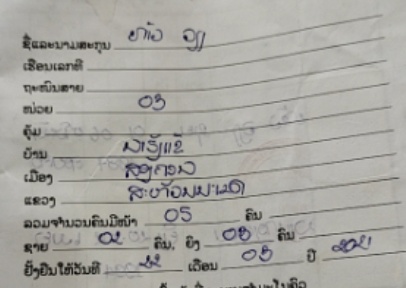 ຊື່ແລະນາມສະກຸນ ທ້າວ
ເຮືອນເລກທີ
ຖະໜົນສາຍ
ໜ່ວຍ 03
ຄຸ້ມ
ບ້ານ
ເມືອງ
ແຂວງ ສະຫວັນນະເຂດ
ລວມຈຳນວນຄົນມີໜ້າ 05 ຄົນ
ຊາຍ 02 ຄົນ, ຍິງ 03 ຄົນ
ຢັ້ງຢືນໃຫ້ວັນທີ 22 ເດືອນ 03 ປີ 2021